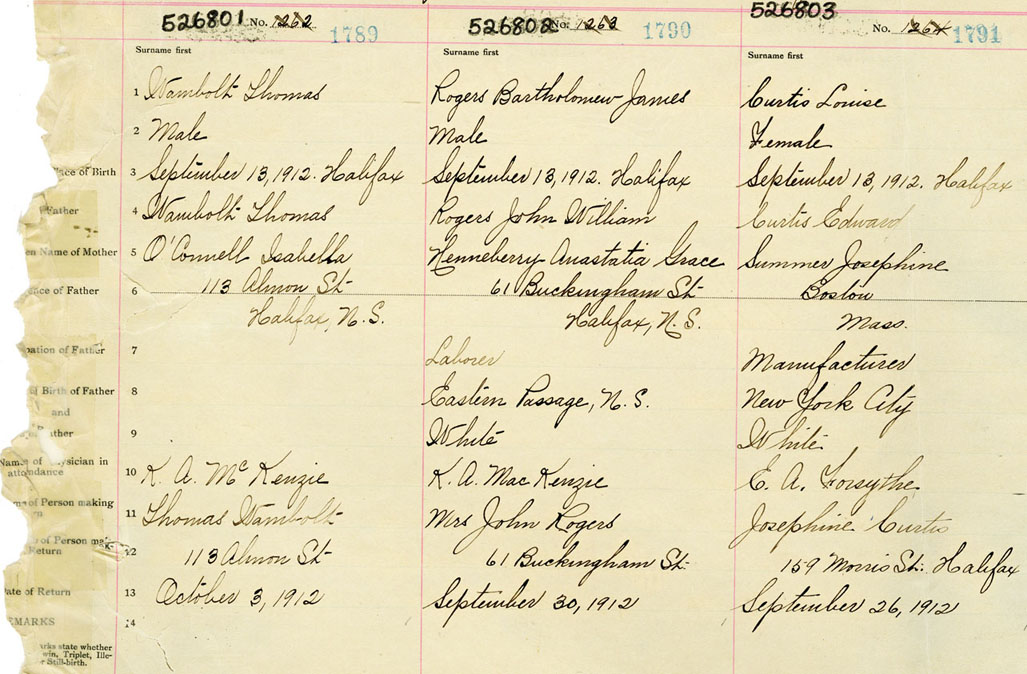 526801 No. 1262 1789
526802 No. 1263 1790
526803 No. 1264 1791
Surname first Surname first Surname first
1 Wambolt Thomas Rogers Bartholomew James Curtis Louise
2 Male Male Female
lace of Birth 3 September 13, 1912. Halifax September 13, 1912. Halifax September 13, 1912. Halifax
Father 4 Wambolt Thomas Rogers John William Curtis Edward
en Name of Mother 5 O'Connell Isabella Henneberry Anastatia Grace Summer Josephine
ence of Father 6 113 Almon St 61 Buckingham St Boston
Halifax, N.S. Halifax, N.S. Mass.
pation of Father 7 Laborer Manufacturer
Birth of Father 8 Eastern Passage, N.S. New York City
and
Father 9 White White
Names of Physician in attendance 10 K. A. McKenzie K. A. MacKenzie E. A. Forsythe
me of Person making
rn 11 Thomas Wambolt Mrs John Rogers Josephine Curtis
of Person mak-
Return 12 113 Almon St 61 Buckingham St. 159 Morris St. Halifax
Date of Return 13 October 3, 1912 September 30, 1912 September 26, 1912
EMARKS 14
rks state whether
win, Triplet, Ille-
r Still-birth.